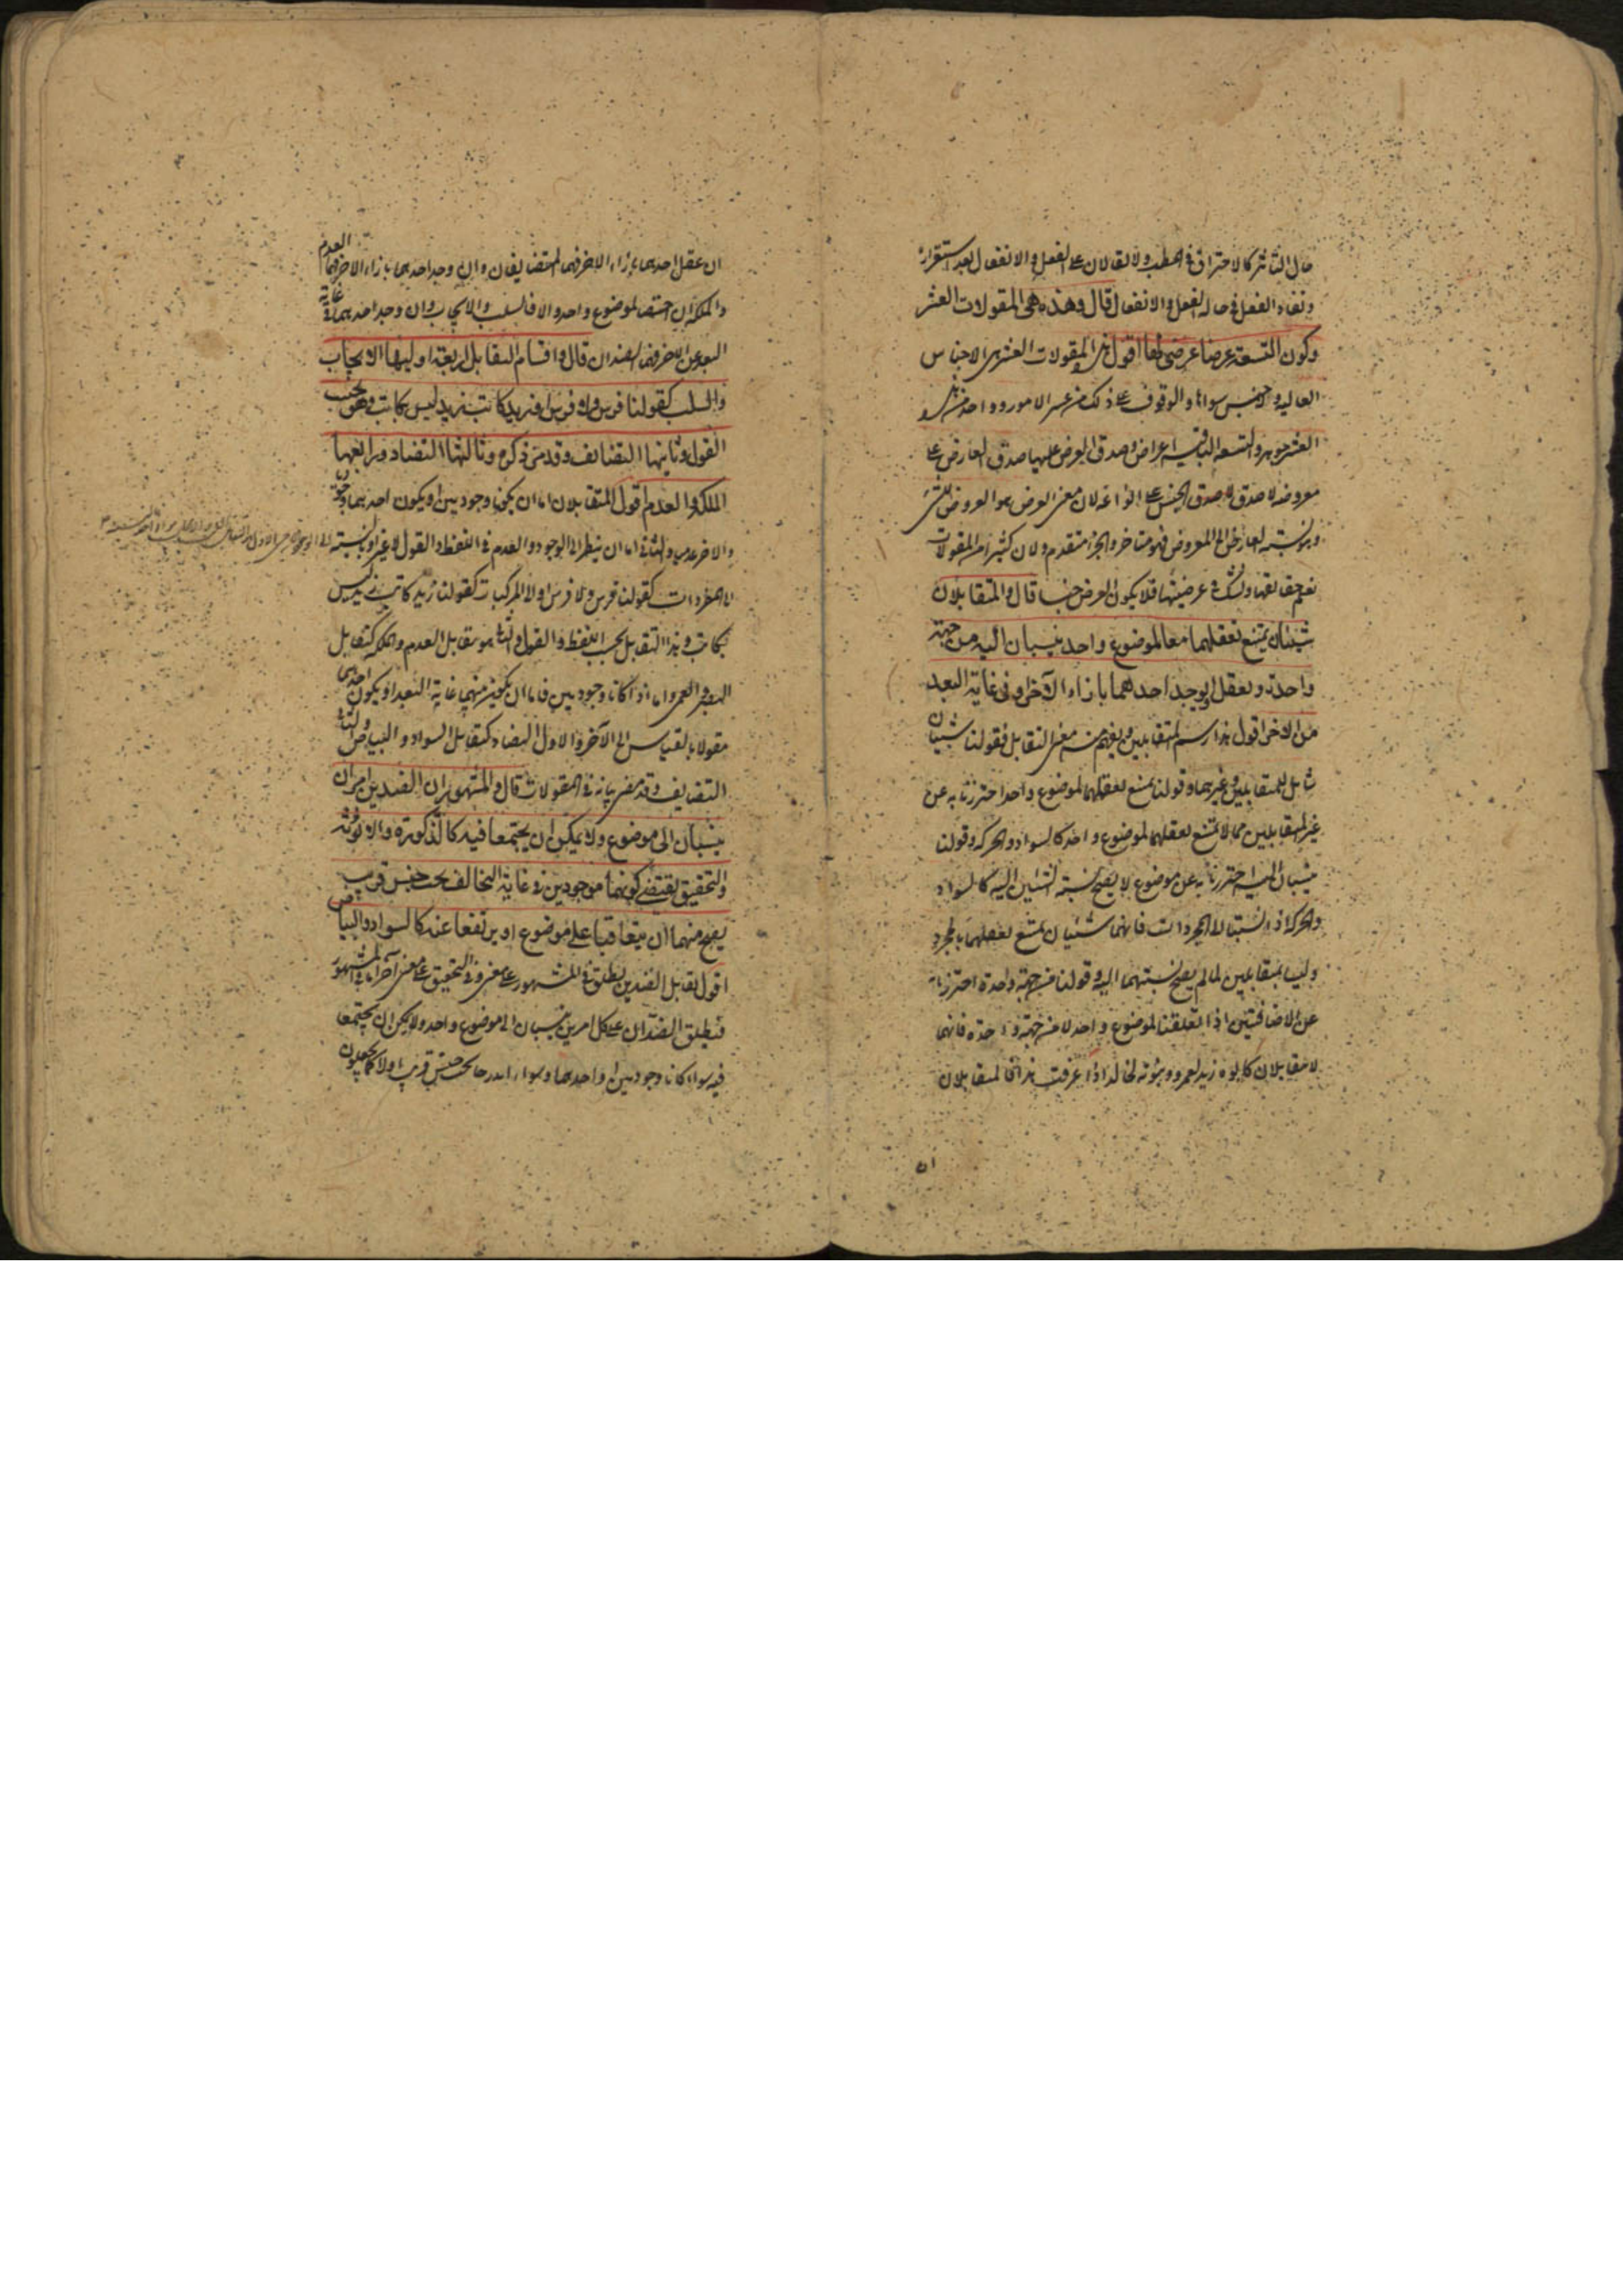 حال التاثر كالاحتراق في الحطب ولا يقالان على الفعل والانفعال بعد استقراره
وبقاء الفعل في حالة الفعل والانفعال قال وهذه هي المقولات العشر
وكون التسعة عرضا عرضي لها اقول هذه المقولات العشر هي الاجناس
العالية ولا جنس سواها والوقوف على ذلك من عسر الامور وواحد من هذه
العشر جوهر والتسعة الباقية اعراض وصدق العرض عليها صدق العارض على
معروضه لا صدق الجنس على انواعه لان معنى العرض هو العروض للشئ
وهو نسبة العارض الى المعروض فهو متاخر والجزء متقدم ولان كثيرا من المقولات
نعلم حقايقها ونشك في عرضيتها فلا يكون العرض جنسا قال والمتقابلان
شيئان يمتنع تعقلهما معا لموضوع واحد ينسبان اليه من جهة
واحدة ويعقل او يوجد احدهما بازاء الآخر او في غاية البعد
من الاخر اقول هذا رسم المتقابلين ويفهم منه معنى التقابل فقولنا شيئان
شامل للمتقابلين وغيرهما وقولنا يمتنع تعقلهما لموضوع واحد احترزنا به عن
غير المتقابلين مما لا يمتنع تعقلهما لموضوع واحد كالسواد والحركة وقولنا
ينسبان اليه احترزنا به عن موضوع لا يصح نسبة الشيئين اليه كالسواد
والحركة اذا نسبتا الى المجردات فانهما شيئان يمتنع تعقلهما بالمجرد
وليسا بمتقابلين لما لم يصح نسبتهما اليه وقولنا من جهة واحدة احترزنا به
عن الاضافتين اذا تعلقتا لموضوع واحد لا من جهة واحدة فانهما
لا متقابلان كابوة زيد لعمرو وبنوته لخالد اذا عرفت هذا فالمتقابلان
ان
ان عقل احدهما بازاء الاخر فهما المتضايفان وان وجد احدهما بازاء الاخر فهما العدم
والملكة ان اختص لموضوع واحد والا فالسلب والايجاب وان وجد احدهما في غاية
البعد عن الاخر فهما الضدان قال واقسام التقابل اربعة اوليها الايجاب
والسلب كقولنا فرس ولا فرس او زيد كاتب زيد ليس بكاتب وهو بحسب
القول وثانيها التضايف وقد مر ذكره وثالثها التضاد ورابعها
الملكة والعدم اقول المتقابلان اما ان يكونا وجوديين او يكون احدهما وجوديا
والاخر عدميا والثاني اما ان ينظر الى الوجود والعدم في اللفظ والقول لا غير او بالنسبة الى الوجود
الى المفردات كقولنا فرس ولا فرس او الى المركبات كقولنا زيد كاتب زيد ليس
بكاتب وهذا التقابل بحسب اللفظ والقول والثاني هو تقابل العدم والملكة كتقابل
البصر والعمى واما اذا كانا وجوديين فاما ان يكون بينهما غاية البعد او يكون احدهما
مقولا بالقياس الى الآخر والاول التضاد كتقابل السواد والبياض والثاني
التضايف وقد مضى بيانه في المقولات قال والمشهور ان الضدين امران
ينسبان الى موضوع ولا يمكن ان يجتمعا فيه كالذكورة والانوثة
والتحقيق يقتضي كونهما موجودين في غاية التخالف تحت جنس قريب
يصح منهما ان يتعاقبا على موضوع او يرتفعا عنه كالسواد والبياض
اقول تقابل الضدين يطلق في المشهور على معنى وفي التحقيق على معنى آخر اما في المشهور
فيطلق الضدان على كل امرين ينسبان الى موضوع واحد ولا يمكن ان يجتمعا
فيه سواء كانا وجوديين او احدهما وسواء اندرجا تحت جنس قريب او لا كما يجعلون